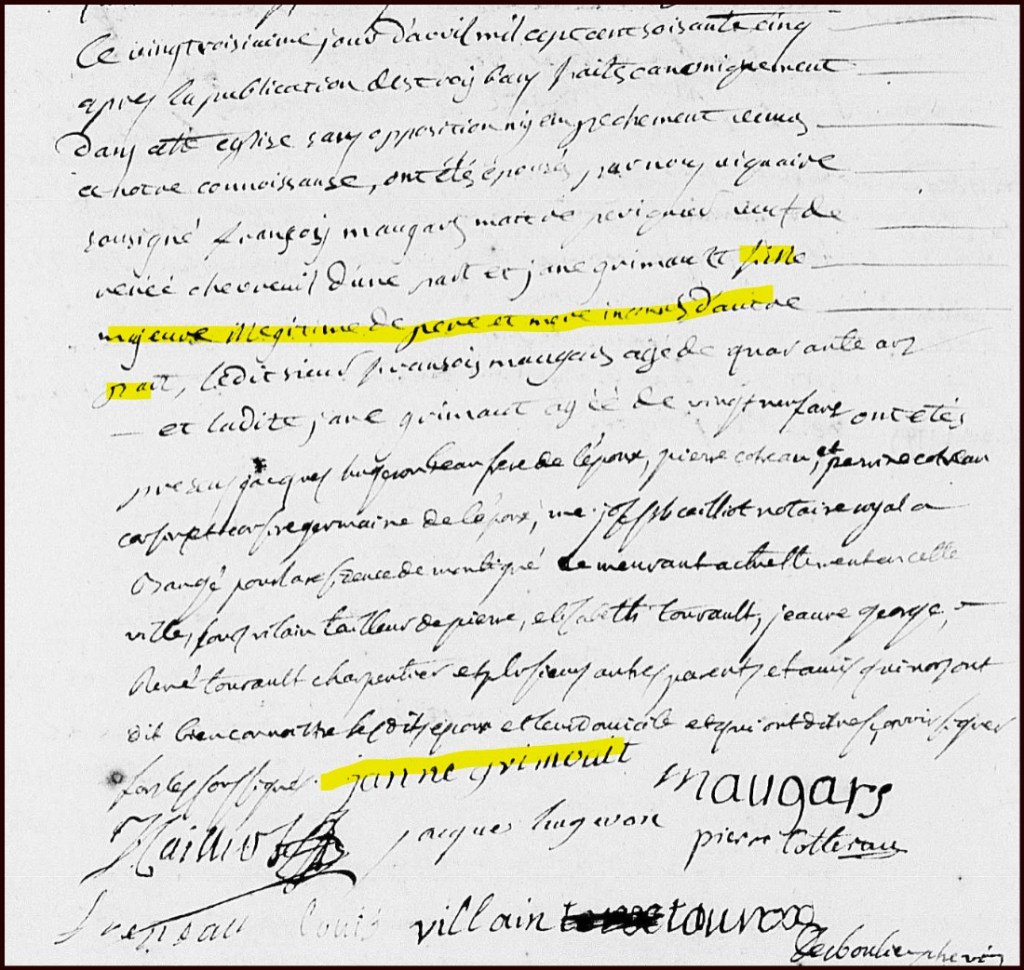 Ce vingtroisiaime jour d'avril mil cept cent soisante cinq
apres la publication des trois bans faits canoniquement
dans cette eglise sans opposition ny empechement venus
a notre connoissanse, ont étés épousés par nous viquaire
sousigné françois maugars maitre periquier veuf de
renée chevreuil d'une part et jane grimault fille
majeure illegitime de pere et mere inconus d'autre
part, ledit sieur fransois maugars agé de quarante ans
et ladite jane grimaut agée de vingt neuf ans ont étés
presens jacques hugeron beaufrere de l'époux, pierre coteau, et perrine coteau
germaine de l'époux, me josesph cailliot notaire royal a
Baugé pour la residence de demeurant actuellement en cette
ville, louis vilain tailleur de pierre, elisabeth tourault, jeanne george,
René tourault charpentier et plusieurs autres parents et amis qui nous ont
dit bien connoitre lesdits epoux et leur domicile et qui ont dit ne sçavoir signer
fors les sousignes. janne grimault
maugars
jacques hugeron
pierre Cotterau
louis villain